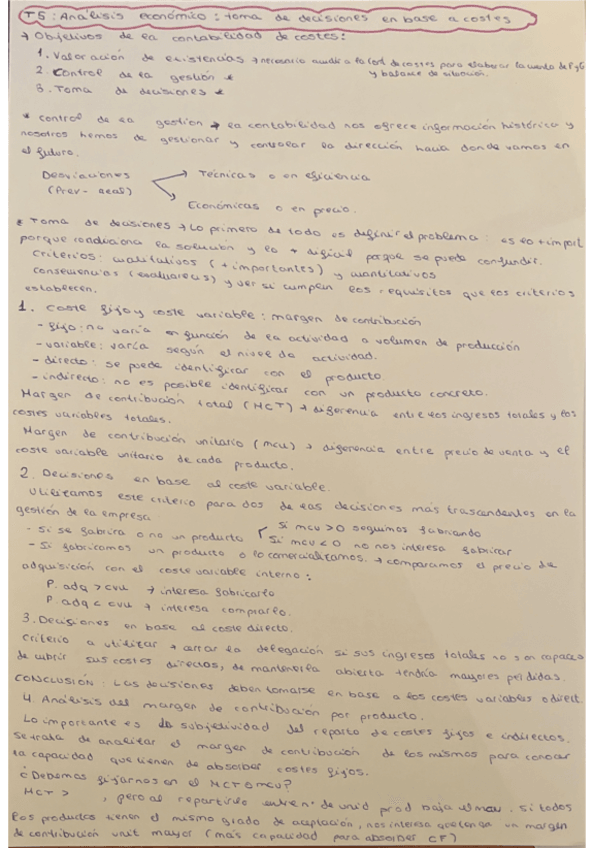 T5: Análisis económico: toma de decisiones en base a costes
→ Objetivos de la contabilidad de costes:
1. Valoración de existencias → necesario acudir a la cont de costes para elaborar la cuenta de PyG
y balance de situación.
2. Control de la gestión *
3. Toma de decisiones *
* Control de la gestión → la contabilidad nos ofrece información histórica y
nosotros hemos de gestionar y controlar la dirección hacia donde vamos en
el futuro.
Desviaciones
(Prev - Real)
Técnicas o en eficiencia
Económicas o en precio.
* Toma de decisiones → Lo primero de todo es definir el problema: es lo + import
porque condiciona la solución y lo + dificil porque se puede confundir.
Criterios: cualitativos (+ importantes) y cuantitativos
consecuencias (evaluarlas) y ver si cumplen los requisitos que los criterios
establecen.
1. Coste fijo y coste variable: margen de contribución
- fijo: no varía en función de la actividad o volumen de producción
- variable: varía según el nivel de actividad.
- directo: se puede identificar con el producto.
- indirecto: no es posible identificar con un producto concreto.
Margen de contribución total (MCT) → diferencia entre los ingresos totales y los
costes variables totales.
Margen de contribución unitario (mcu) → diferencia entre precio de venta y el
coste variable unitario de cada producto.
2. Decisiones en base al coste variable.
Utilizamos este criterio para dos de las decisiones más trascendentes en la
gestión de la empresa
- Si se fabrica o no un producto
Si mcu > 0 seguimos fabricando
Si mcu < 0 no nos interesa fabricar
- Si fabricamos un producto o lo comercializamos. → comparamos el precio de
adquisición con el coste variable interno:
P. adq > cvu → interesa fabricarlo
P. adq < cvu → interesa comprarlo.
3. Decisiones en base al coste directo.
Criterio a utilizar → cerrar la delegación si sus ingresos totales no son capaces
de cubrir sus costes directos, de mantenerla abierta tendría mayores pérdidas.
CONCLUSIÓN: Las decisiones deben tomarse en base a los costes variables o direct.
4. Análisis del margen de contribución por producto.
Lo importante es la subjetividad del reparto de costes fijos e indirectos.
Se trata de analizar el margen de contribución de los mismos para conocer
la capacidad que tienen de absorber costes fijos.
¿Debemos fijarnos en el MCT o mcu?
MCT > , pero al repartirlo entre nº de unid prod baja el mcu. Si todos
los productos tienen el mismo grado de aceptación, nos interesa que tengan un margen
de contribución unit mayor (más capacidad para absorber CF)